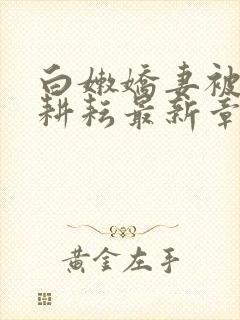 白嫩嬌妻被
耕耘最新章
黃金左手